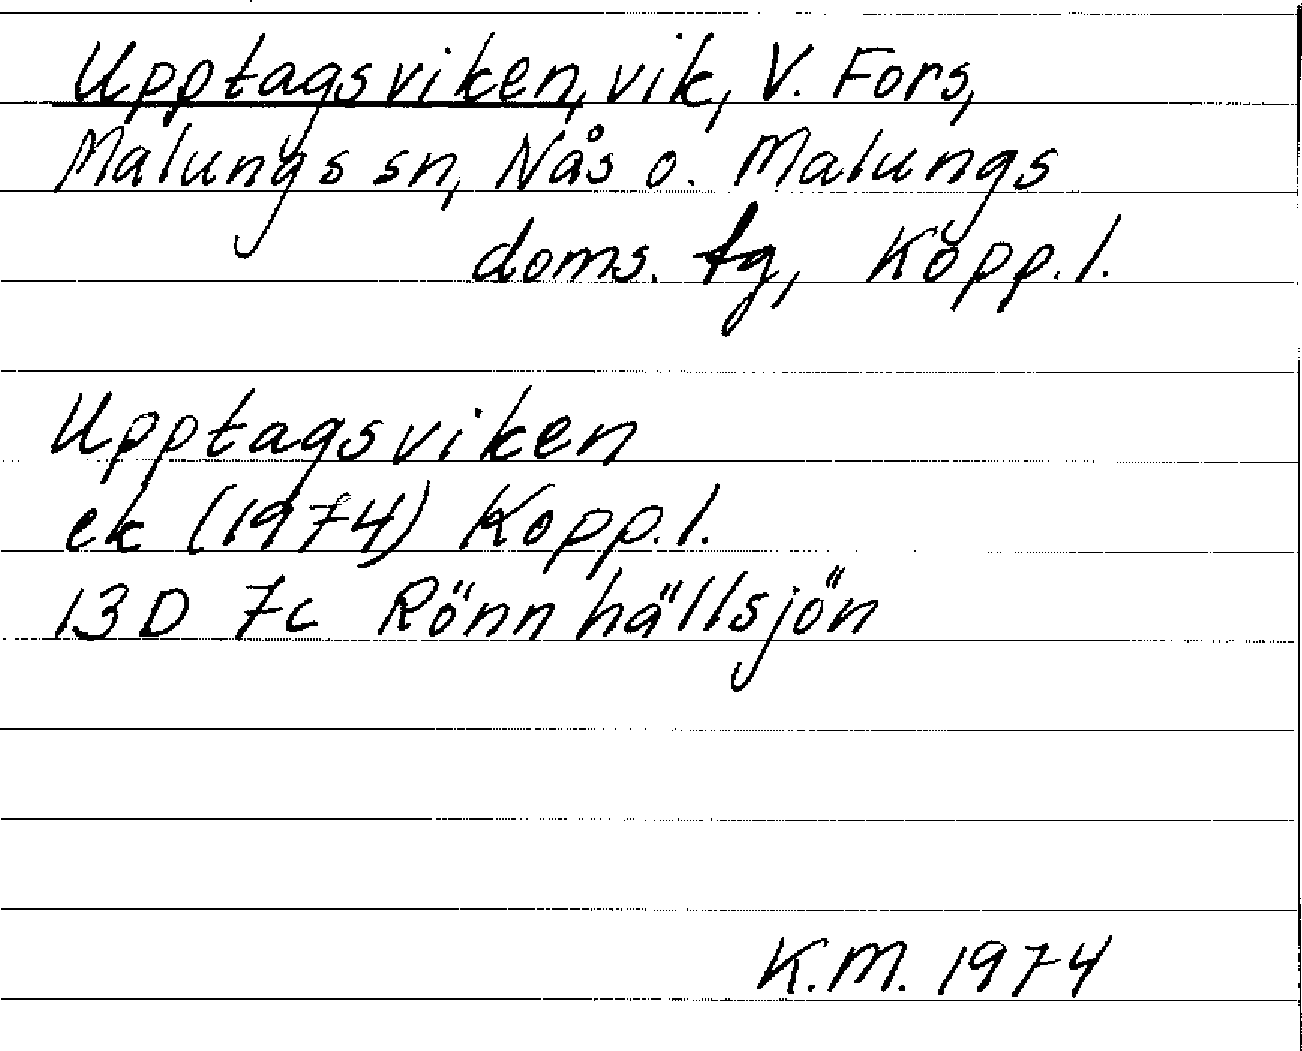 Upptagsviken, vik, V. Fors,
Malungs sn, Nås o. Malungs
doms. tg, Kopp.l.
Upptagsviken
ek (1974) Kopp.l.
13D 7c Rönnhällsjön
K.M. 1974